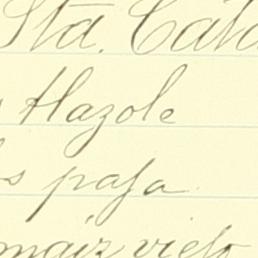 Sta. Cata
Hazole
s paja
maiz viejo